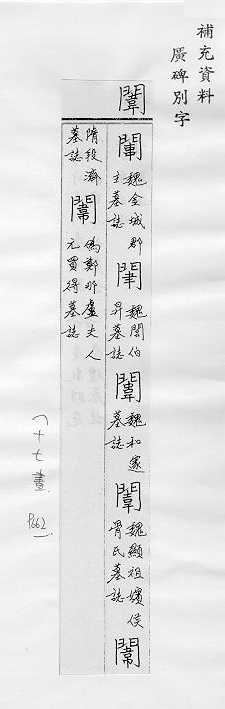 補充資料
廣碑別字
闈
闈 魏金城郡主墓誌 闈 魏閻伯昇墓誌 闈 魏和邃墓誌 闈 魏顯祖嬪侯骨氏墓誌 闈
隋段濟墓誌 闈 偽鄭那盧夫人元買得墓誌
(十七畫 P662)